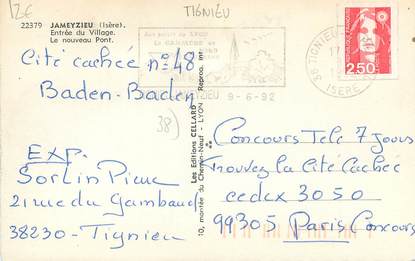 12€
TIGNIEU
22379 JAMEYZIEU (Isère).
Entrée du Village.
Le nouveau Pont.
9-6-92
38 TIGNIEU
ISERE
RÉPUBLIQUE FRANÇAISE
2,50
Cité cachée n°48
Baden-Baden
38)
EXP.
Sorlin
21 rue du Gambaud
38230-Tignieu
Les Editions CELLARD
10, montée du Chemin-Neuf - LYON Reprod. int.
Concours Télé 7 jours
Trouvez la Cité Cachée
cedex 3050
99305 Paris Concours